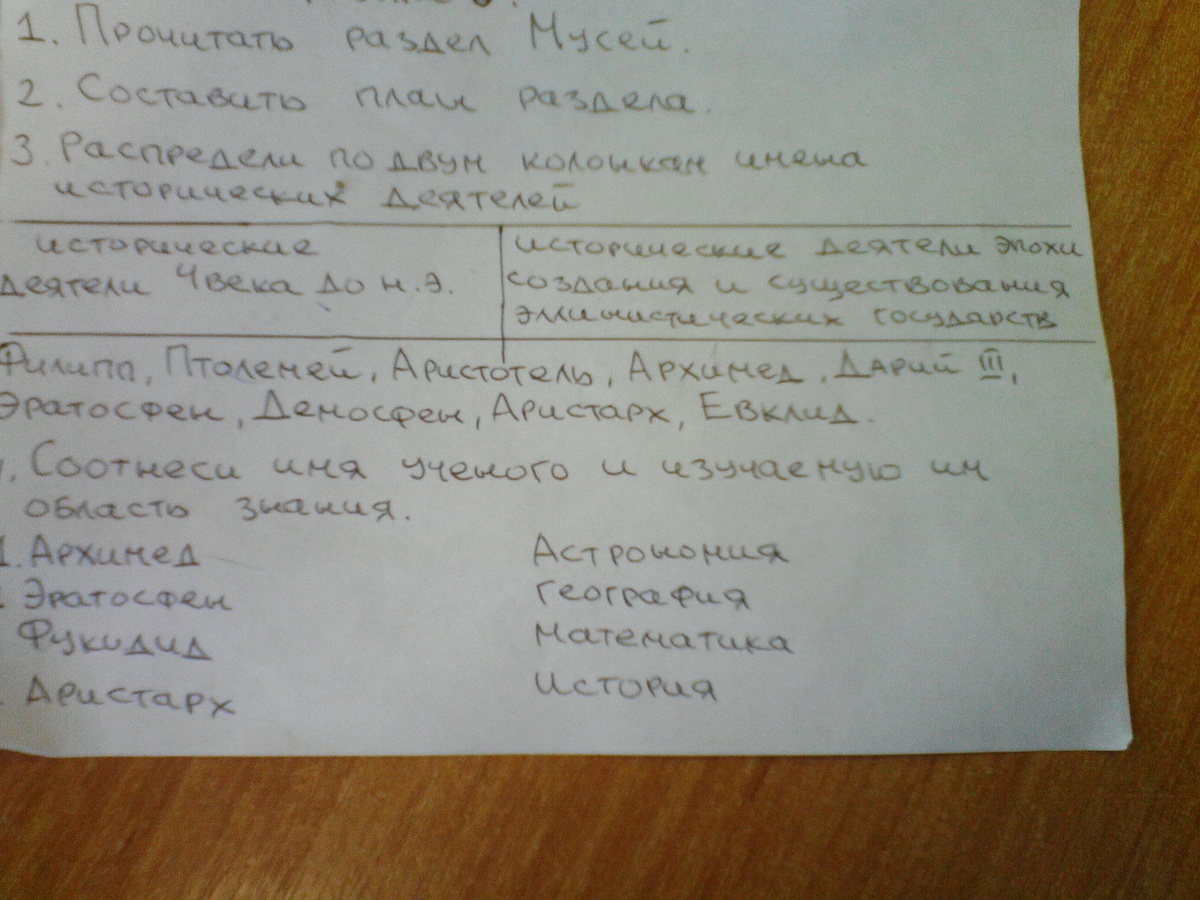 1. Прочитать раздел Мусей.
2. Составить план раздела.
3. Распредели по двум колонкам имена
исторических деятелей
исторические
деятели 4 века до н.э.
исторические деятели эпохи
создания и существования
эллинистических государств
Филипп, Птолемей, Аристотель, Архимед, Дарий III,
Эратосфен, Демосфен, Аристарх, Евклид.
Соотнеси имя ученого и изучаемую им
область знания.
1. Архимед Астрономия
Эратосфен География
Фукидид Математика
Аристарх История